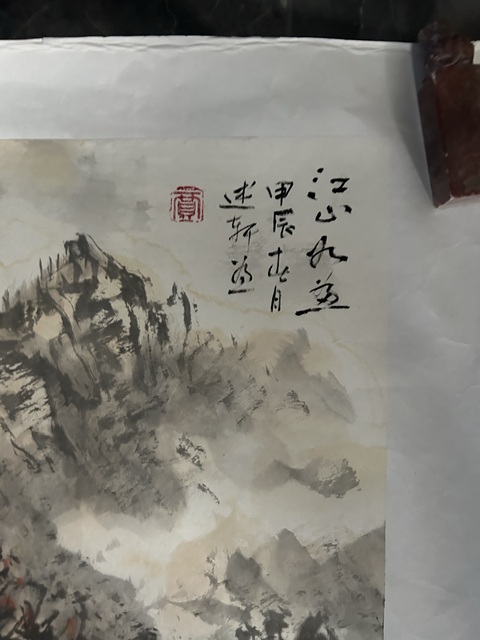 江山如画
甲辰月
述轩